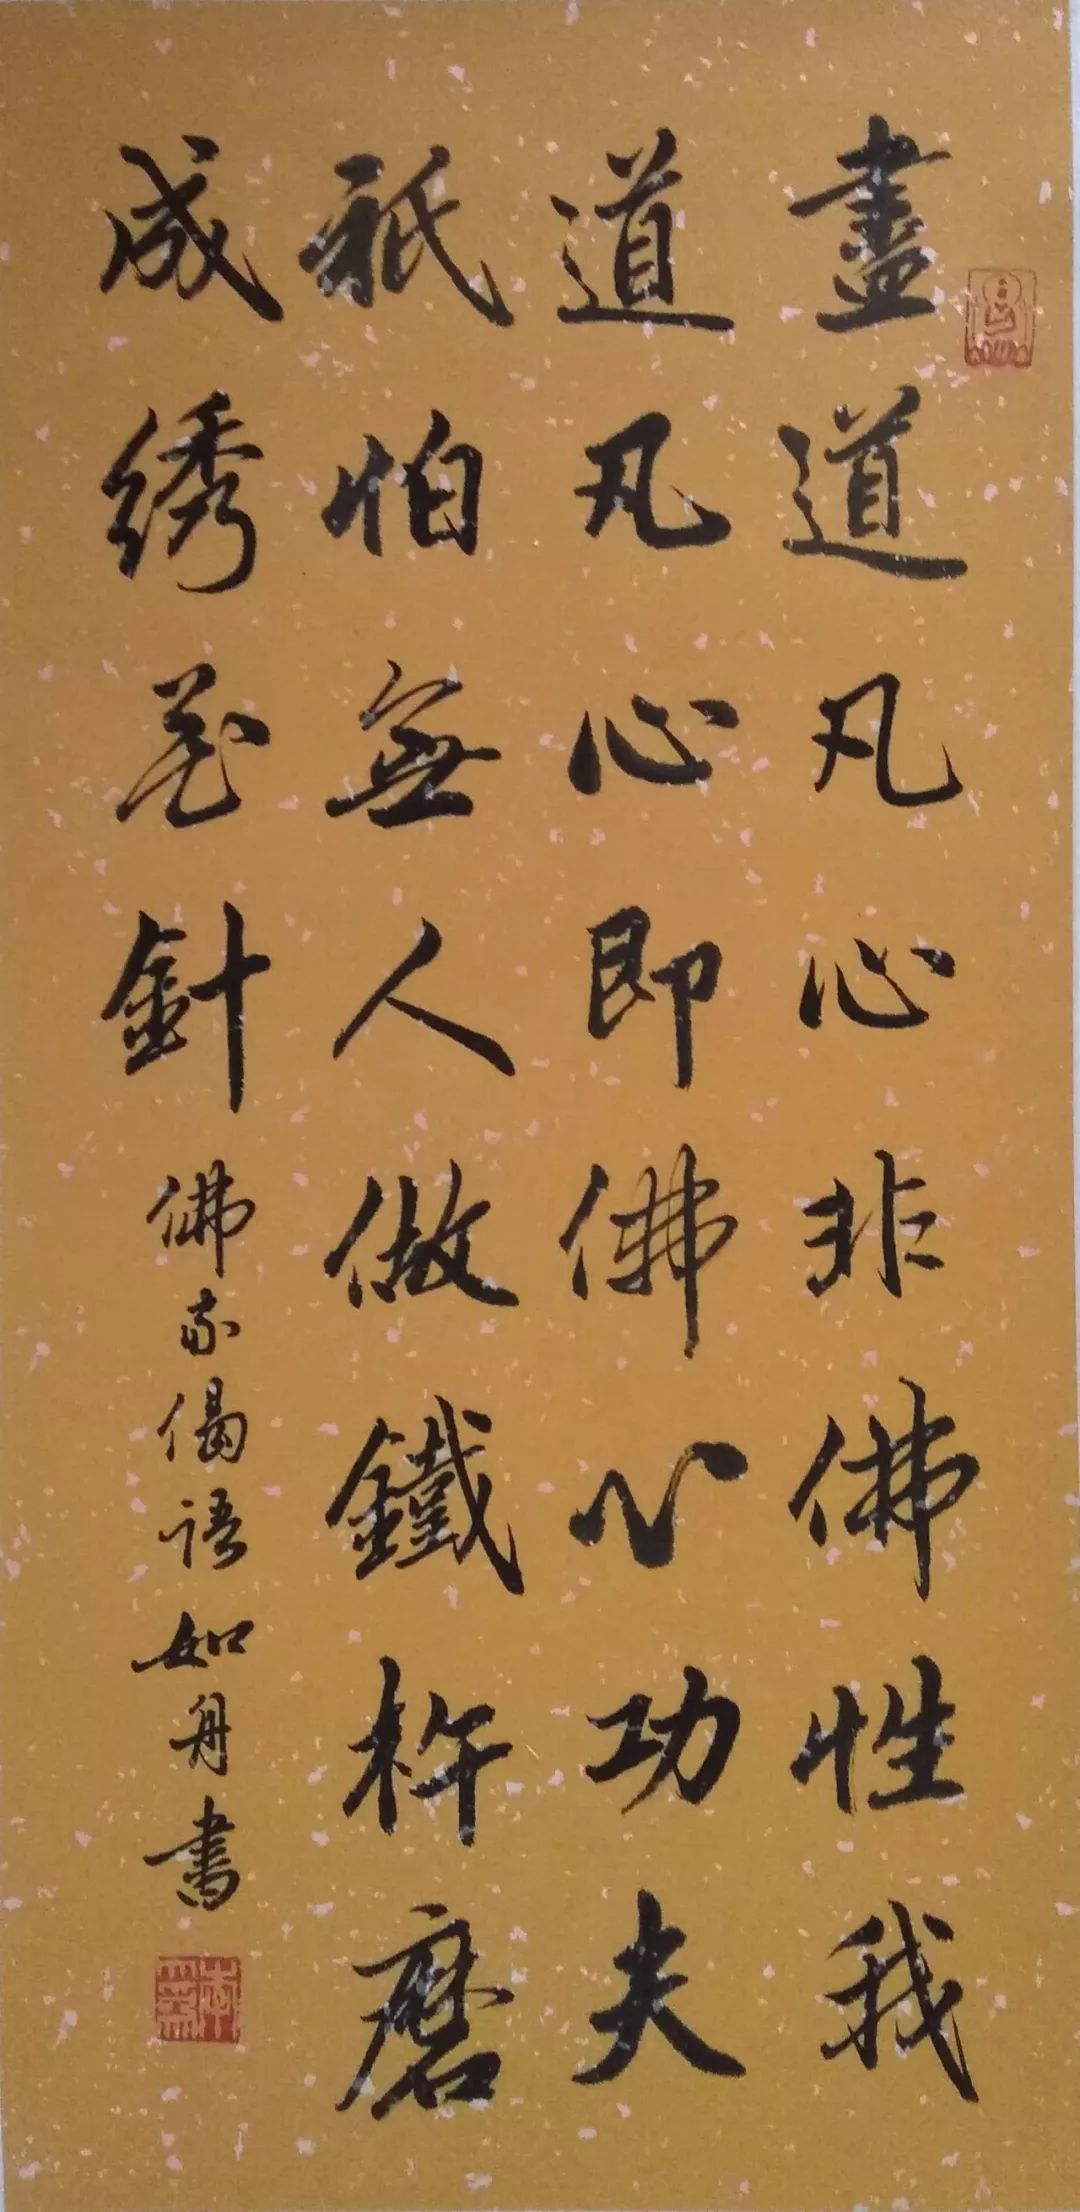 盡道凡心非佛性我
道凡心即佛心功夫
祇怕無人做鐵杵磨
成绣花針
佛家偈語如舟書